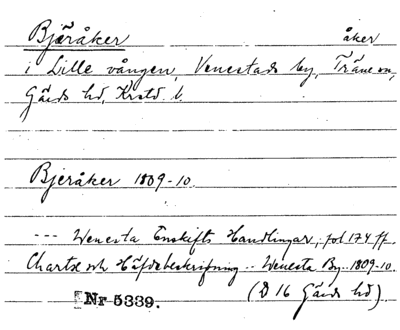 Bjäråker åker
i Lille vången, Venestads by, Träne sn,
Gärds hd, Krstd. l.
Bjeråker 1809-10.
--- Wenesta Enskifts Handlingar, fol 174 ff.
Chartæ och Häfdebeskrifning .. Wenesta By.. 1809-10.
(D 16 Gärds hd).
Nr 5339.